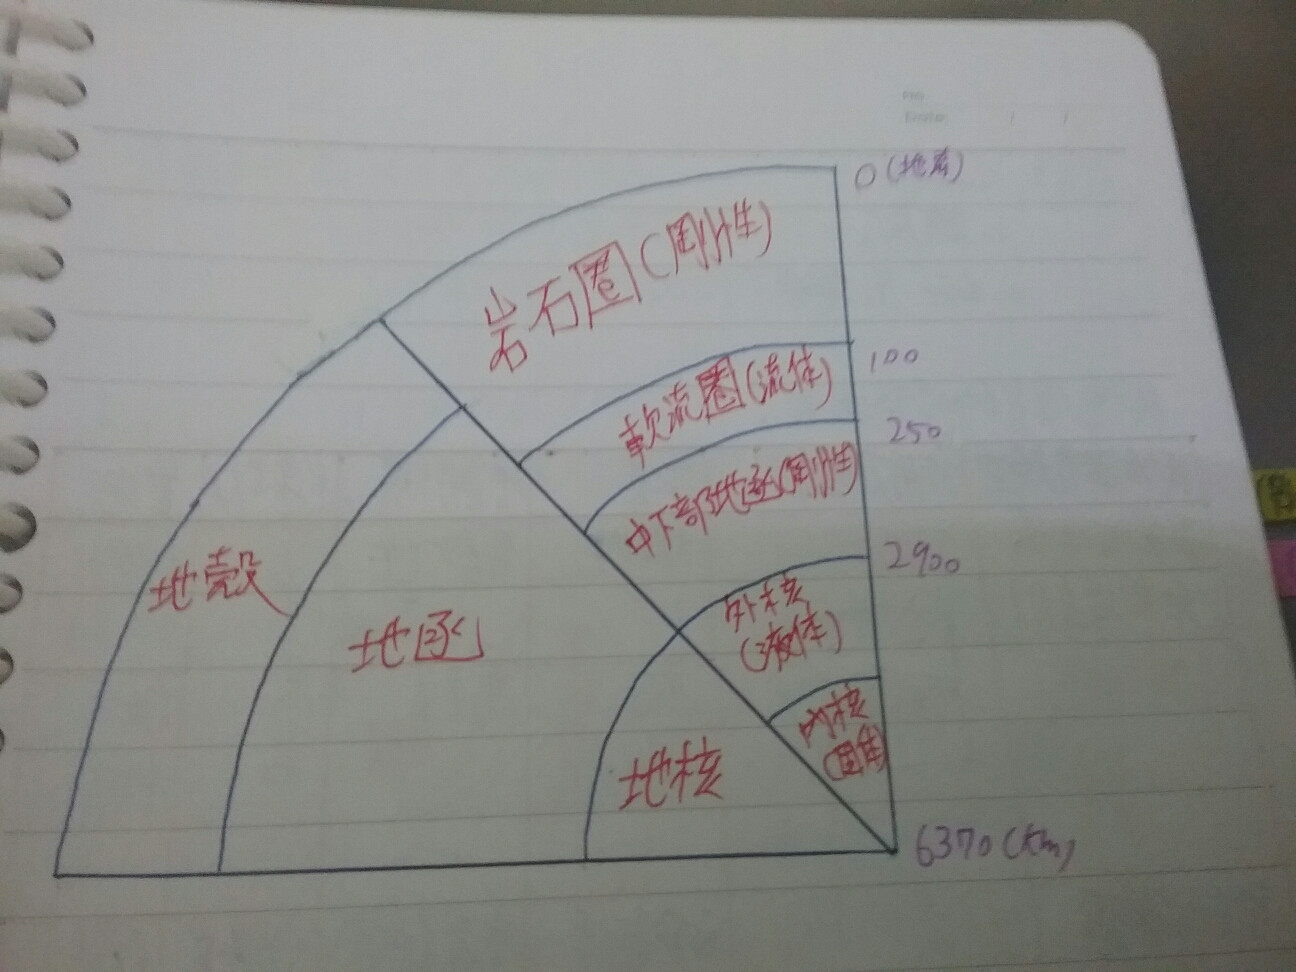 0(地表)
岩石圈(剛性)
100
軟流圈(流体)
250
中下部地函(剛性)
2900
外核
(液体)
内核
(固体)
6370(km)
地殼
地函
地核